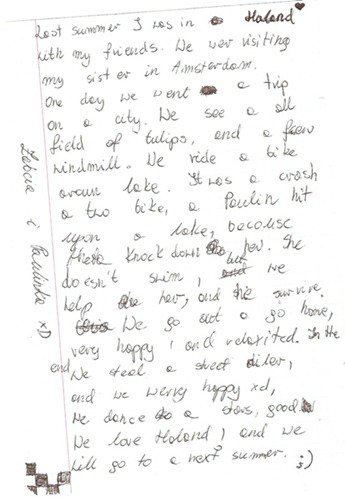 Last summer I was in Holand ♥
with my friends. We wer visiting
my sister in Amsterdam.
One day we went a trip
on a city. We see a all
field of tulips, and a feew
windmill. We ride a bike
aroun lake. It was a crash
a two bike, a Paulin hit
upon a lake, becaluse
knock down her. She
doesn't swim, but we
help her, and survive.
We go out a go home,
very happy, and relaxited. In the
end We steal a street diler,
and we werry happy xd,
We dance a stars, good
We love Holand, and we
will go to a next summer. ;)
Zabcia i Paulinka xD